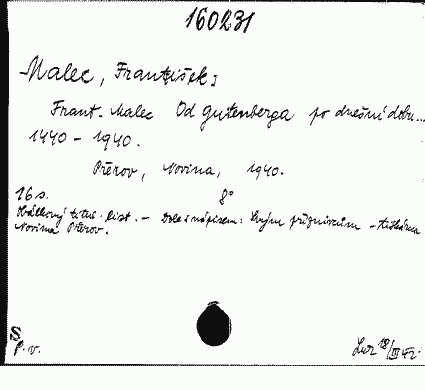 160231
Malec, František:
Frant. Malec Od Gutenberga po dnešní dobu...
1440 - 1940.
Přerov, Novina, 1940.
16 s. 8°
Obálkový titul. list. - Dole s nápisem: Svým příznivcům - tiskárna
Novina Přerov.
S
P. v.
Lur 18/III 42.